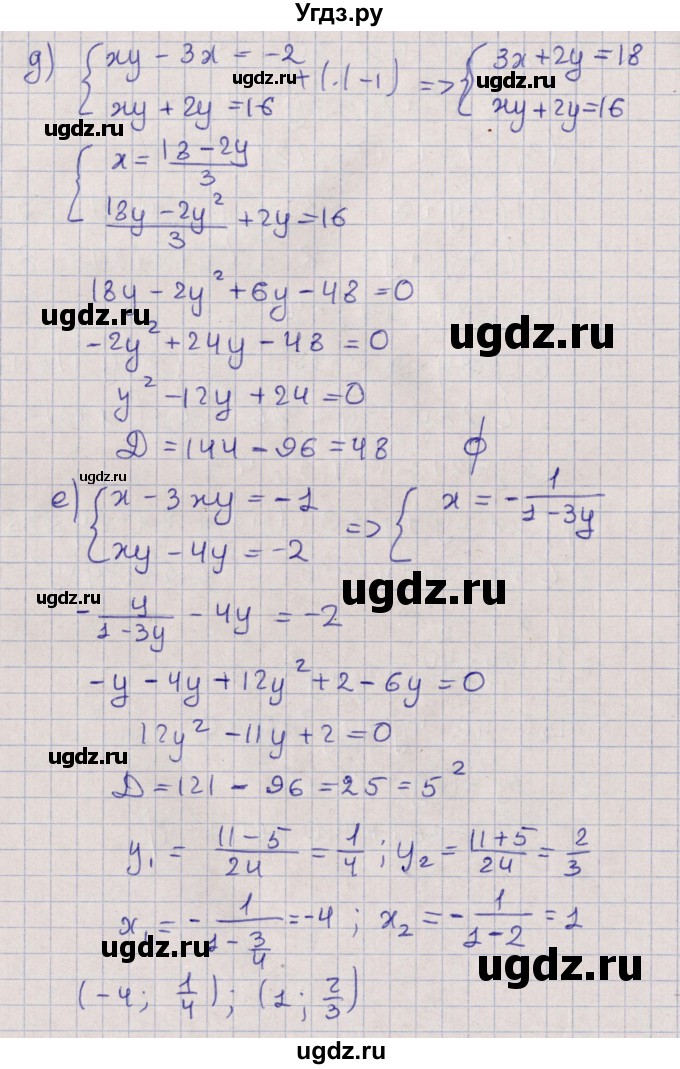 Угдз.ру
д) { xy - 3x = -2 + (·(-1) => { 3x + 2y = 18
xy + 2y = 16 xy + 2y = 16
ugdz.ru ugdz.ru
ugdz.ru
{ x = (18 - 2y)/3
(18y - 2y²)/3 + 2y = 16
18y - 2y² + 6y - 48 = 0
ugdz.ru
-2y² + 24y - 48 = 0
ugdz.ru
y² - 12y + 24 = 0
Д = 144 - 96 = 48 ϕ
ugdz.ru
е) { x - 3xy = -1 => { x = - 1/(1 - 3y)
xy - 4y = -2
ugdz.ru ugdz.ru
- y/(1 - 3y) - 4y = -2
-y - 4y + 12y² + 2 - 6y = 0
12y² - 11y + 2 = 0
ugdz.ru
Д = 121 - 96 = 25 = 5²
y₁ = (11 - 5)/24 = 1/4 ; y₂ = (11 + 5)/24 = 2/3
x₁ = - 1/(1 - 3/4) = -4 ; x₂ = - 1/(1 - 2) = 1
ugdz.ru ugdz.ru
(-4; 1/4) ; (1; 2/3)
ugdz.ru